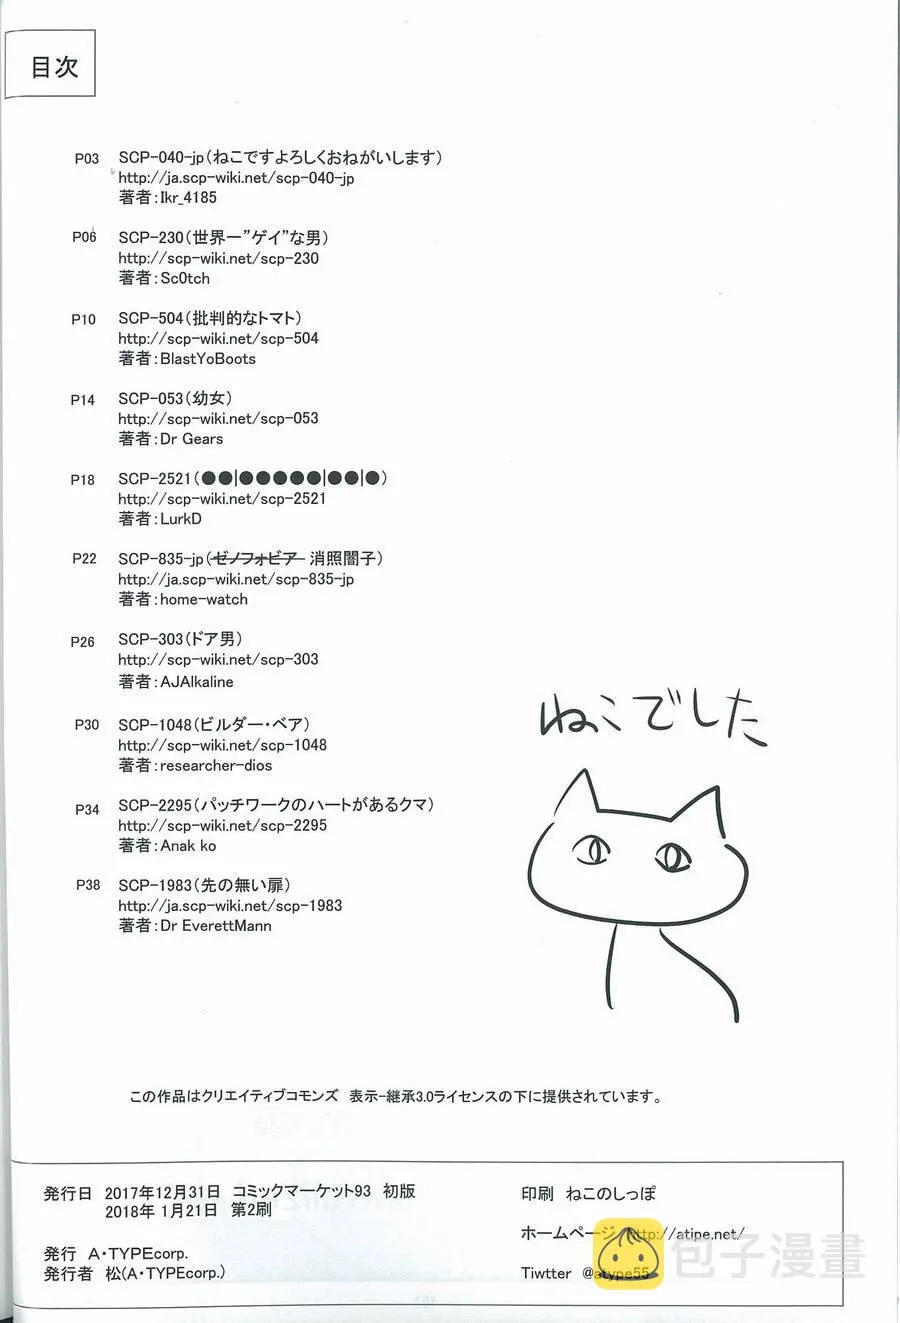 目次
P03 SCP-040-jp(ねこですよろしくおねがいします)
http://ja.scp-wiki.net/scp-040-jp
著者:Ikr_4185
P06 SCP-230(世界一"ゲイ"な男)
http://scp-wiki.net/scp-230
著者:Sc0tch
P10 SCP-504(批判的なトマト)
http://scp-wiki.net/scp-504
著者:BlastYoBoots
P14 SCP-053(幼女)
http://scp-wiki.net/scp-053
著者:Dr Gears
P18 SCP-2521(●●|●●●●●|●●|●)
http://scp-wiki.net/scp-2521
著者:LurkD
P22 SCP-835-jp(ゼノフォビア 消照闇子)
http://ja.scp-wiki.net/scp-835-jp
著者:home-watch
P26 SCP-303(ドア男)
http://scp-wiki.net/scp-303
著者:AJAlkaline
P30 SCP-1048(ビルダー・ベア)
http://scp-wiki.net/scp-1048
著者:researcher-dios
P34 SCP-2295(パッチワークのハートがあるクマ)
http://scp-wiki.net/scp-2295
著者:Anak ko
P38 SCP-1983(先の無い扉)
http://ja.scp-wiki.net/scp-1983
著者:Dr EverettMann
ねこでした
この作品はクリエイティブコモンズ 表示-継承3.0ライセンスの下に提供されています。
発行日 2017年12月31日 コミックマーケット93 初版
2018年 1月21日 第2刷
発行 A・TYPEcorp.
発行者 松(A・TYPEcorp.)
印刷 ねこのしっぽ
ホームページ http://atipe.net/
Tiwtter @atype55
包子漫畫